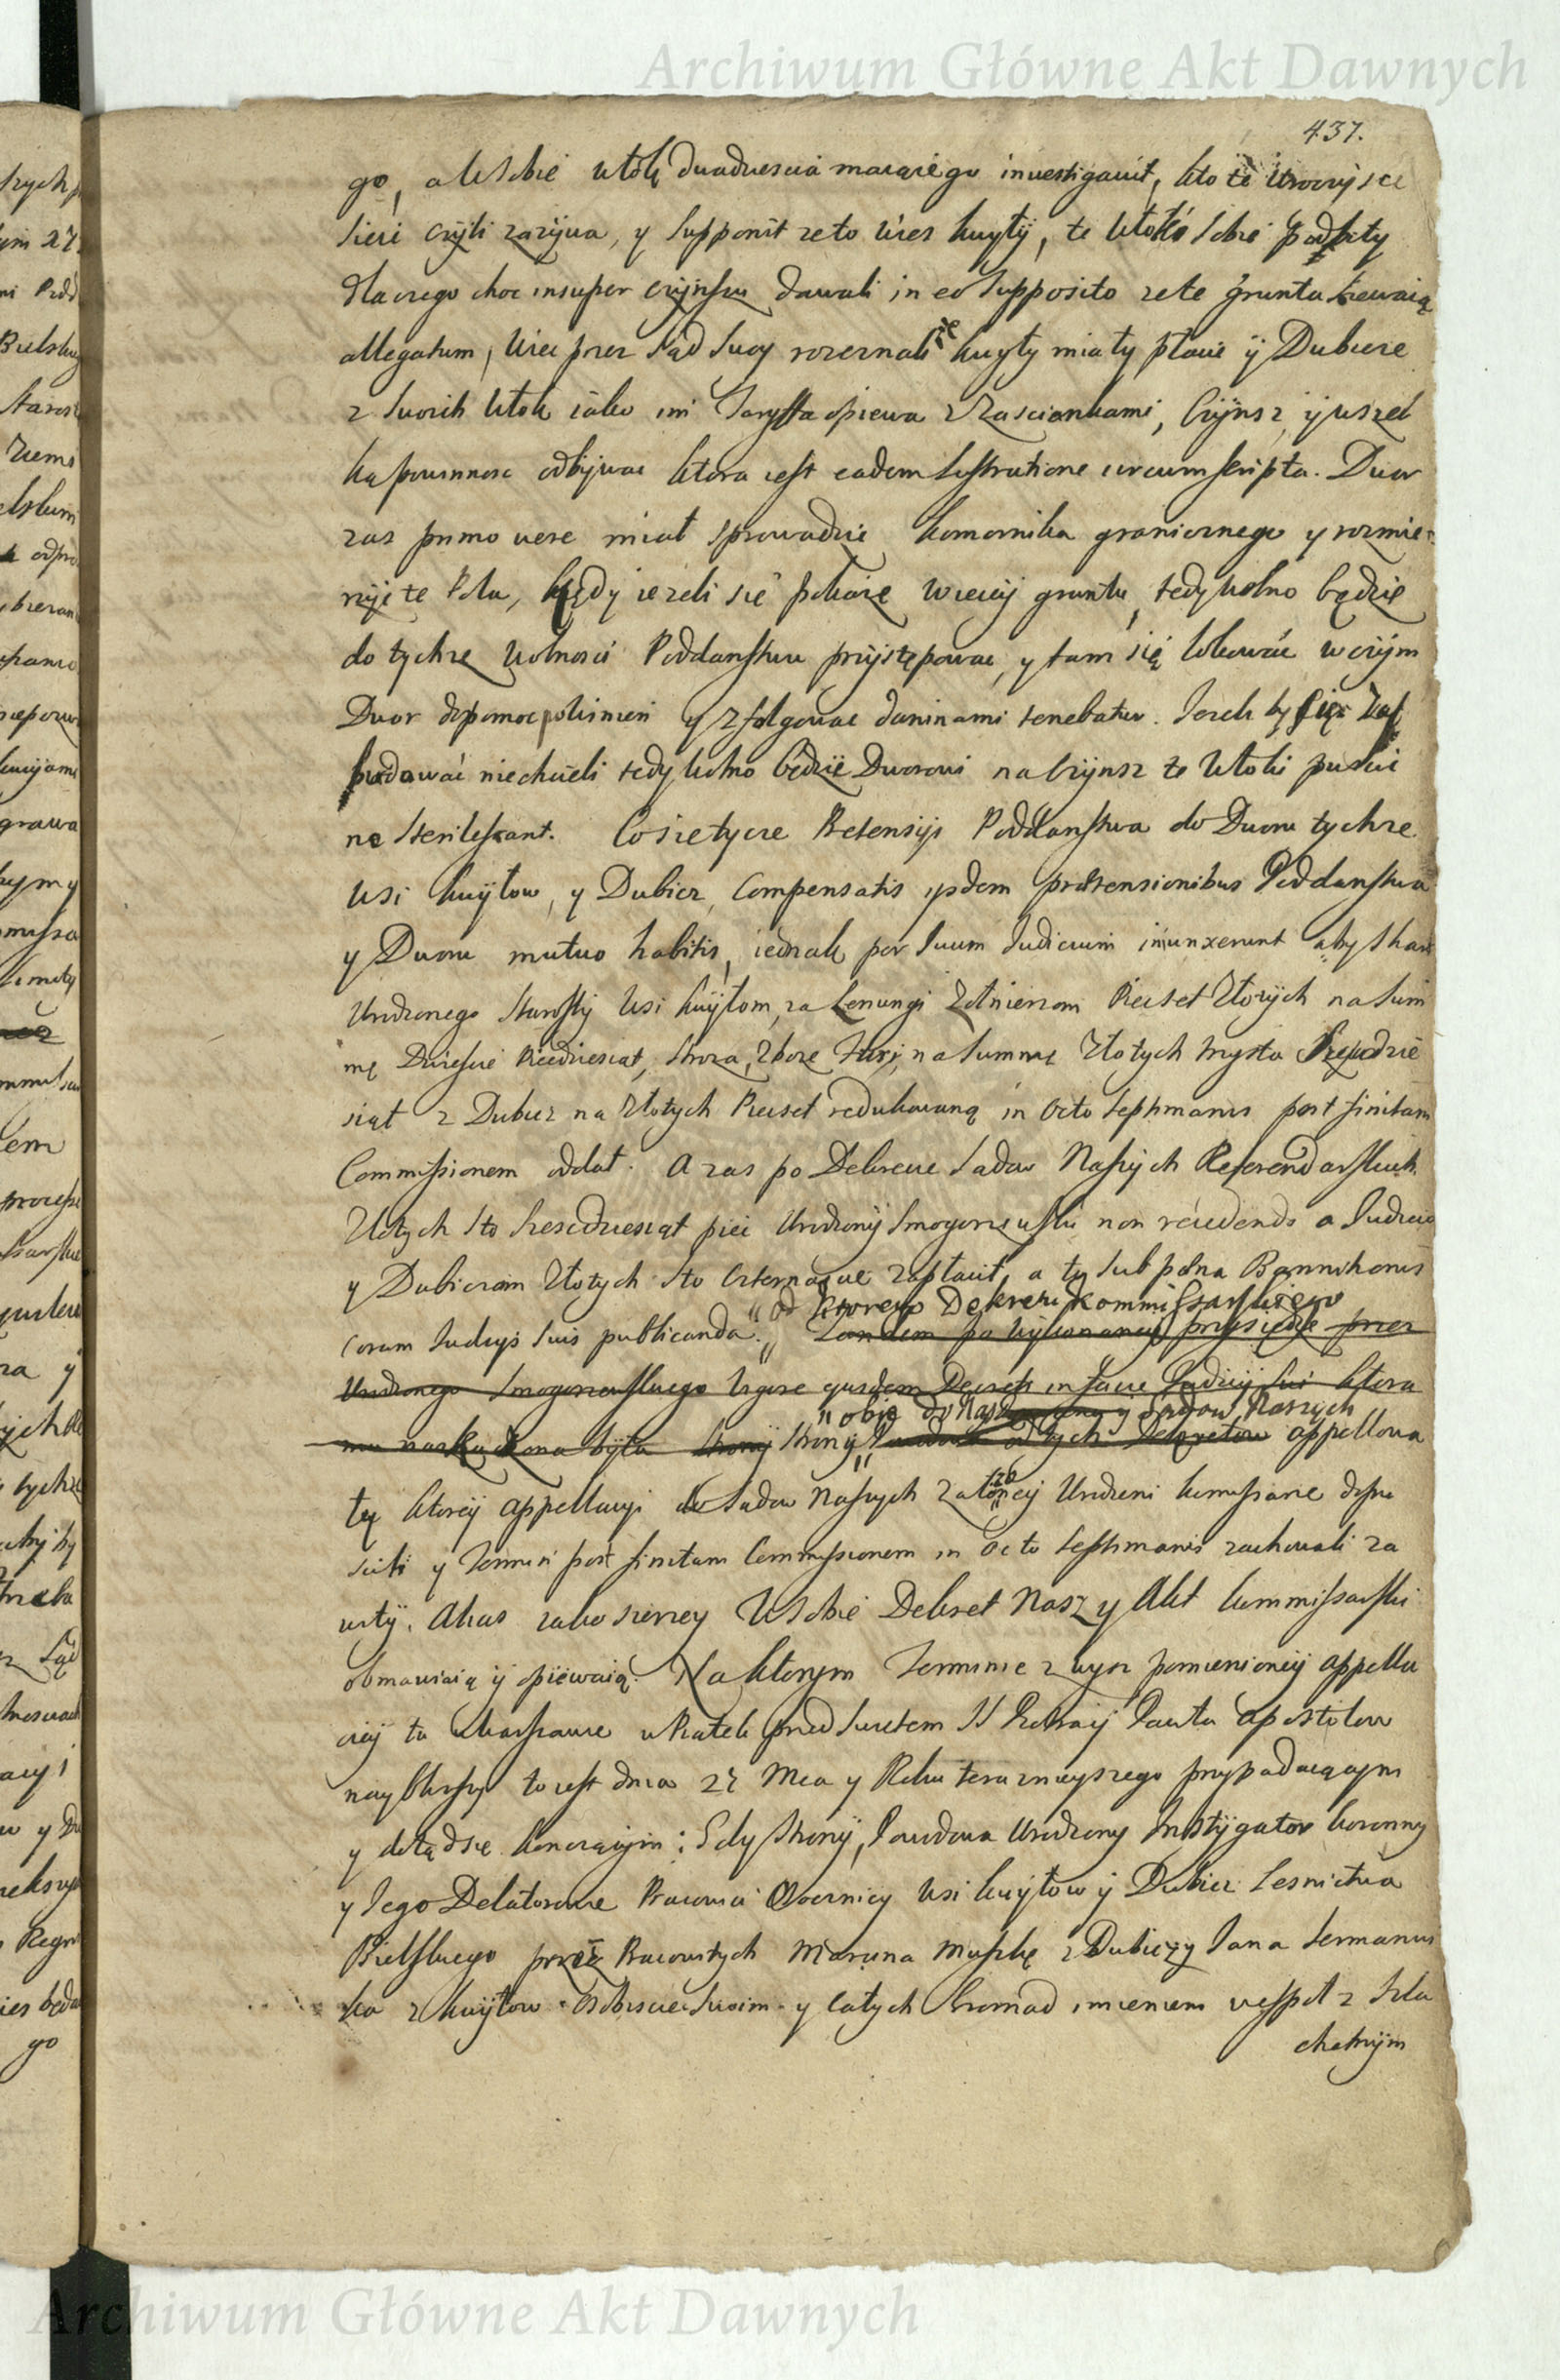 Archiwum Główne Akt Dawnych
437.
go, a W sobie włók dwadziescia maiącego investigavit, kto te Uroczysce
sieie czyli zazywa, y supponit ze to Wies Kuyły, te Włoki sobie podbity
dlaczego choc insuper czynszu dawali in eo supposito ze te grunta trzymaią
allegatum, Wiec przez Sąd Swoy rozeznali że Kuyły miały płacic ÿ Dubicze
z Swoich Włok iako im Taryffa opiewa z Zascienkami, Czynsz, ÿ wszel
ką powinnosc odbÿwac ktora iest eadem lustratione circumscripta. Dwor
zas primo vere miał sprowadzic Komornika granicznego y rozmie-
rzyc te Pola, kiedy iezeli się pokaze wiecey gruntu, tedy wolno będzie
do tychze Wolnosci Poddanstwu przystępowac, y tam się lokować w czÿm
Dwor dopomoc powinien y zfolgowac daninami tenebatur. Jezeli by się
budować niechcieli tedy wolno będzie Dworowi na Czynsz te Włoki puscic
ne sterilescant. Co sie tycze Pretensyi Poddanstwa do Dworu tychze
Wsi Kuyłow, y Dubicz, Compensatis ipsdem prætensionibus Poddanstwa
y Dworu mutuo habitis, iednak per suum Judicium iniunxerunt aby
Urodzonego Starosty Wsi Kuyłom, za Lenungi Zołnierzom Piecset Złotych na Sum
mę Dwiescie Piecdziesiat, Stroza, Zboze na Summę Złotych trzysta
siąt z Dubicz na Złotych Piecset redukowaną in Octo Septimanis post finitam
Commissionem oddał. A zas po Dekrecie Sadow Naszych Referendarskich
Złotych Sto Szescdziesiąt piec Urodzony Smogorzewski non recedendo a Judicio
y Dubiczom Złotych Sto Czternascie zapłacił, a to sub pœna Bannitionis
od ktorego Dekretu Kommissarskiego
coram Judicys suis publicanda. Tandem po wykonaney przysiędze przez
Urodzonego Smogorzewskiego Vigore ejusdem Decreti in facie Judicij sui ktora
obie do Nas y Sądow Naszych
mu nakazana była Strony Strony od tych Dekretow appellowa
ły ktorey appellacyi do Sadow Naszych załozoney Urodzeni Kommissarze dopu
scili y Termin post finitam Commissionem in Octo Septimanis zachowali za
wity. Ahas iako szerzey W sobie Dekret Nasz y Akt Kommissarski
obmawiaią ÿ opiewaią. Na ktorym Terminie z wysz pomienioney appella
cyi tu w Warszawie w Piątek przed Swietem SS Piotra ÿ Pawła apostołow
nayblizszy to iest dnia 27 Mca y Roku teraznieyszego przypadaiącym
y dotąd się konczącym; Gdy Strony, Powodowa Urodzony Instygator Koronny
y Jego Delatorowie Pracowici Oczernicy Wsi Kuyłow ÿ Dubicz Lesnictwa
Bielskiego przez Pracowitych Marcina Muszkę z Dubiczy Jana Sermaniu
ka z Kuyłow Osobiscie Swoim y całych Gromad imieniem wespoł z Szla
chetnÿm
Archiwum Główne Akt Dawnych